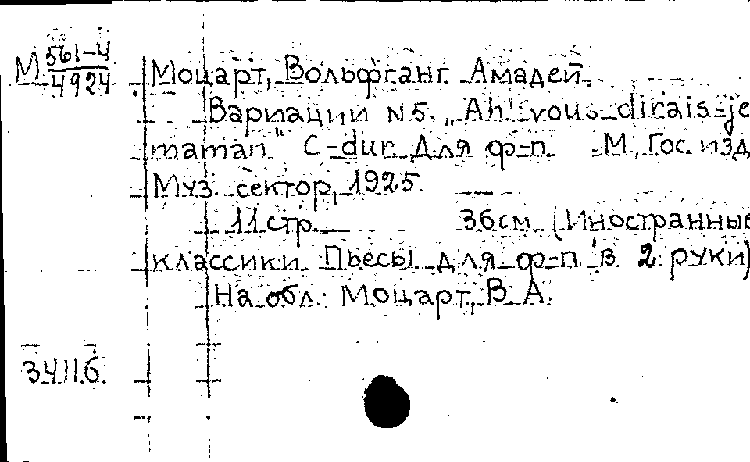 М 561-4
4924
Моцарт, Вольфганг Амадей.
Вариации N5. „Ah! vous dirais-je
maman" C-dur. Для ф-п. М, Гос. изд
Муз. сектор, 1925.
11 стр. 36см (Иностранные
классики. Пьесы для ф-п в 2 руки)
На обл.: Моцарт, В. А.
3411б.